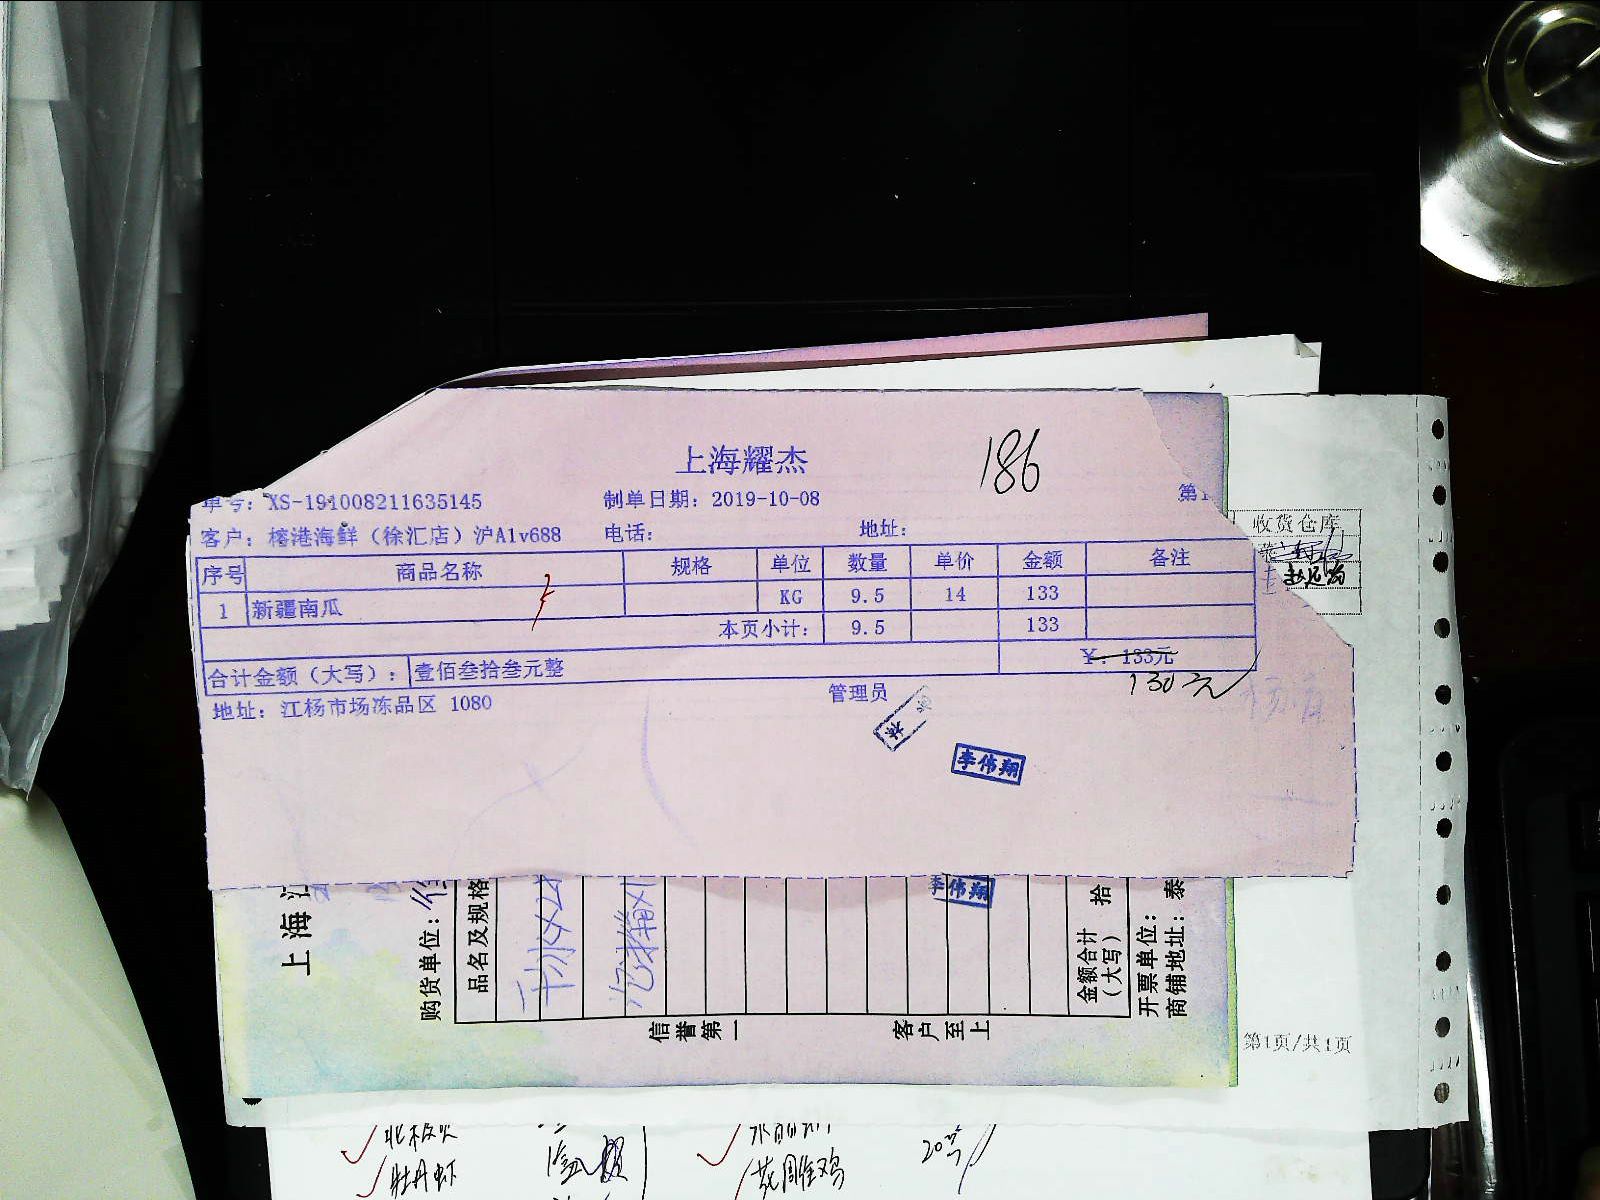 上海耀杰
186
单号：XS-191008211635145 制单日期：2019-10-08 第1
客户：榕港海鲜（徐汇店）沪A1v688 电话： 地址：
序号 商品名称 规格 单位 数量 单价 金额 备注
1 新疆南瓜 KG 9.5 14 133
本页小计： 9.5 133
合计金额（大写）： 壹佰叁拾叁元整 ￥：133元
130元
地址：江杨市场冻品区 1080 管理员
林
李伟翔
收货仓库
李伟翔
上海江
购货单位：
品名及规格
金额合计（大写） 拾
开票单位：
商铺地址：泰
信誉第一 客户至上
第1页/共1页
北极贝
牡丹虾
花雕鸡
20